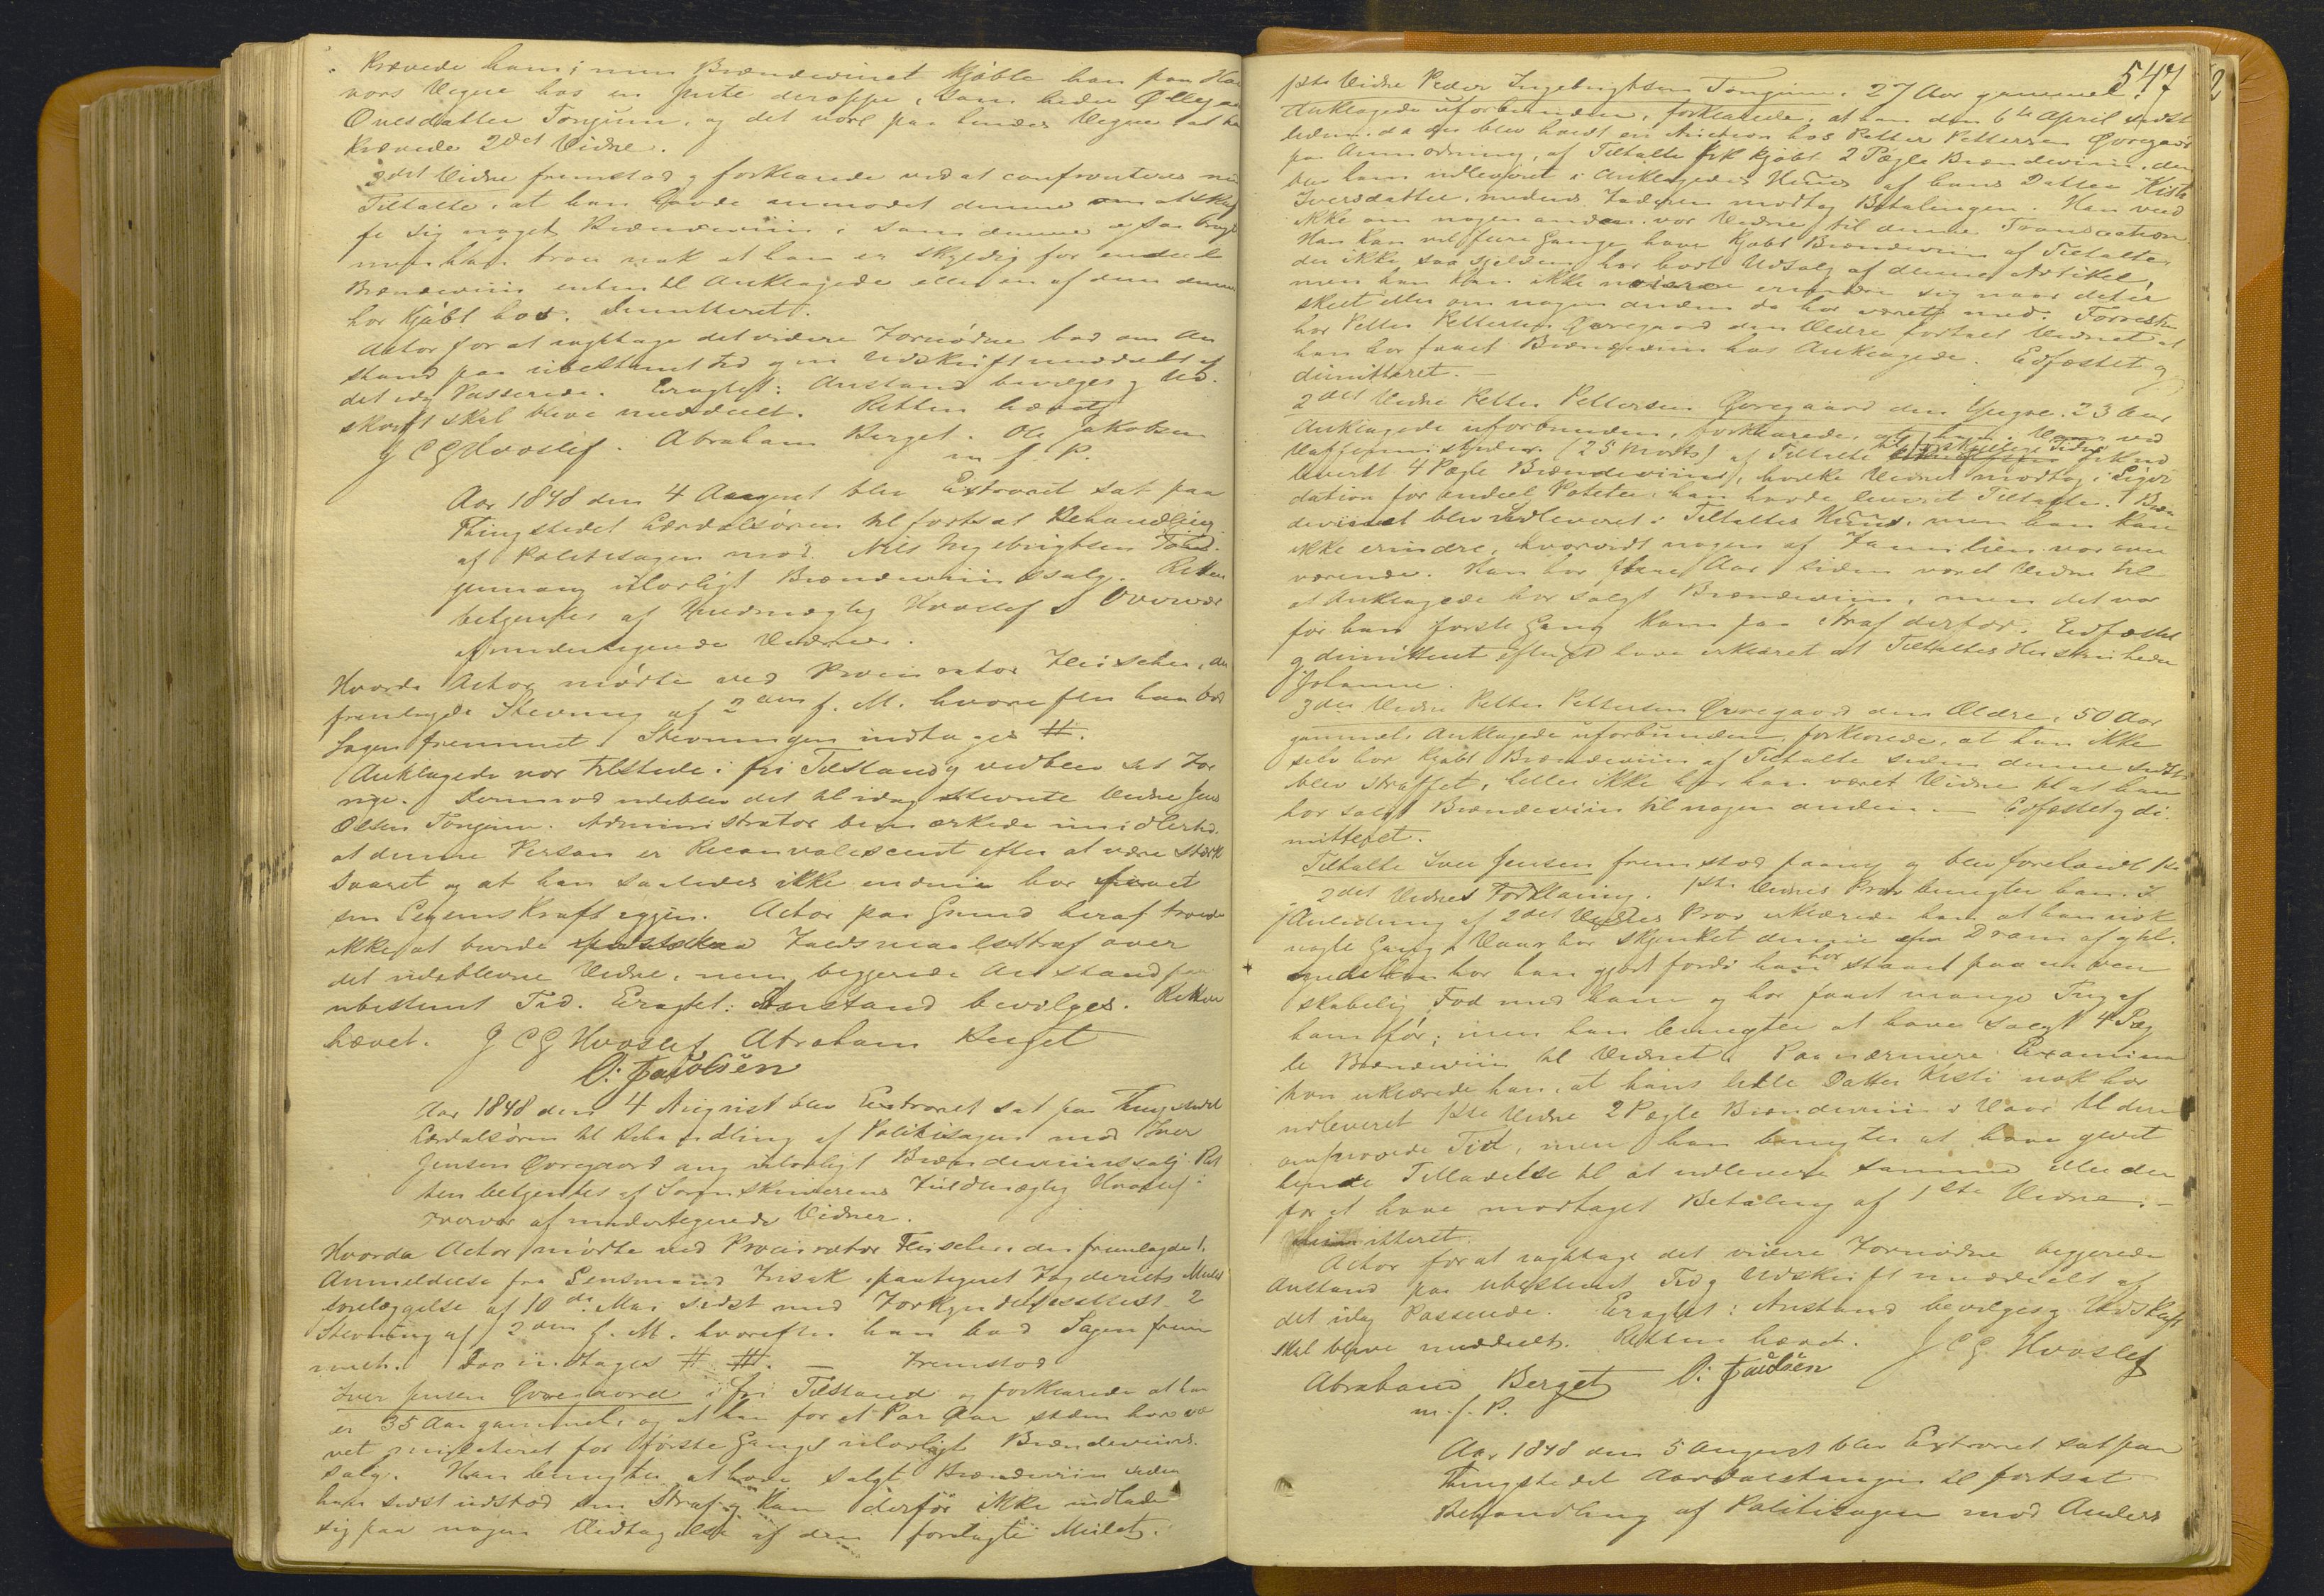 Krævede ham; men Brændeviinet kjøbte han paa Hal
vors Vegne hos en Jente deroppe, som heder Øllegaar
Ovesdatter Tønjum, og det vare paa hendes Vegne at han
Krævede 2det Vidne.
2det Vidne fremstod og forklarede ved at confronteres med
Tiltalte, at han havde anmodet denne om at skaf
fe sig noget Brændeviin, som denne ogsaa
men han troer nok at han er skyldig for endeel
Brændeviin enten til Anklagede eller en af dem denne
har kjøbt hos. Dimitteret.
Actor for at iagttage det videre Fornødne bad om An
stand paa ubestemt Tid og en Udskrift meddeelt af
det idag Passerede. Eragtet: Anstand bevilges og Ud-
skrift skal blive meddeelt. Retten hævet
J C G Hvoslef. Abraham Berget. Ole Jakobsen
m. f. P.
Aar 1848 den 4 August blev Extraret sat paa
Thingstedet Lærdalsøren til fortsat Behandling
af Politisagen mod Nils Ingebrigtsen Tøn-
jum ang ulovligt Brændeviinssalg. Retten
betjentes af Fuldmægtig Hvoslef i Overvær
af undertegnede Vidner.
Hvorda Actor mødte ved Procurator Fleischer, der
fremlagde Stevning af 2den f. M. hvorefter han bad
Sagen fremmet. Stevningen indtages #.
Anklagede var tilstede i fri Tilstand og vedblev sit For
rige. Derimod udeblev det til idag stevnte Vidne Jens
Olsen Tønjum. Administrator bemærkede imidlertid
at denne Person er Reconvalescent efter at være stærk
saaret og at han saaledes ikke endnu har faaet
sin Legems Kraft igjen. Actor paa Grund heraf troede
ikke at burde paastaa Faldsmaalsstraf over
det udeblevne Vidne, men begjerede Anstand paa
ubestemt Tid. Eragtet: Anstand bevilges. Retten
hævet. J C G Hvoslef Abraham Berget
O: Jacobsen
Aar 1848 den 4 August blev Extraret sat paa Thingstedet
Lærdalsøren til Behandling af Politisagen mod Iver
Jensen Øvregaard ang ulovligt Brændeviinssalg. Ret
ten betjentes af Sorenskriverens Fuldmægtig Hvoslef i
Overvær af undertegnede Vidner.
Hvorda Actor mødte ved Procurator Fleischer, der fremlagde 1.
Anmeldelse fra Lensmand Husak paategnet Fogderiets Mulct
forelæggelse af 10de Mai sidst med Forkyndelsesattest 2
Stevning af 2den f. M. hvorefter han bad Sagen frem
met. Doc indtages # #. — Fremstod
Iver Jensen Øvregaard i fri Tilstand og forklarede at han
er 35 Aar gammel, og at han for et Par Aar siden har væ
ret mulcteret for første Gangs ulovligt Brændeviins
salg. Han benegter at have solgt Brændeviin siden
han sidst udstod sin Straf og kan derfor ikke indlade
sig paa nogen Vedtagelse af den forelagte Mulct.
547
1ste Vidne Peder Ingebrigtsen Tønjum. 27 Aar gammel.
Anklagede uforbunden, forklarede, at han den 6te April sidst
leden, da der blev holdt en Auction hos Petter Pettersen Øvregaard
paa Anmodning, af Tiltalte fik kjøbt 2 Pægle Brændeviin, der
blev ham udleveret i Anklagedes Huus af hans Datter Kisti
Iversdatter, medens Faderen modtog Betalingen. Han veed
ikke om nogen anden var Vidne til denne Transaction
Han kan vel flere Gange have kjøbt Brændeviin af Tiltalte
der ikke saa sjelden har havt Udsalg af denne Artikel,
men han kan ikke nøiere erindre sig naar det er
skeet eller om nogen anden da har været med. Forresten
har Petter Pettersen Øvregaard den Ældre fortalt Vidnet at
han har faaet Brændeviin hos Anklagede. Edfæstet og
dimitteret. —
2det Vidne Petter Pettersen Øvregaard den Yngre. 23 Aar
Anklagede uforbunden, forklarede, at han i Vaar ved
(25 Marts) af Tiltalte til forskjellige Tider fik ud
leveret 4 Pægle Brændeviin, hvilke Vidnet modtog i Liqvi
dation for endeel Poteter, han havde leveret Tiltalte. Bræn
deviinet blev udleveret i Tiltaltes Huus, men han kan
ikke erindre, hvorvidt nogen af Familien var over
værende. Han har flere Aar siden været Vidne til
at Anklagede har solgt Brændeviin, men det var
før han første Gang kom paa Straf derfor. Edfæstet
og dimitteret efterat have erklæret at Tiltaltes Hustru heder
Johanne.
3die Vidne Petter Pettersen Øvregaard den Ældre, 50 Aar
gammel, Anklagede uforbunden, forklarede, at han ikke
selv har kjøbt Brændeviin af Tiltalte siden denne sidst
blev straffet, heller ikke har han været Vidne til at han
har solgt Brændeviin til nogen anden. — Edfæstet og di
mitteret.
Tiltalte Iver Jensen fremstod paany og blev foreholdt 1ste
og 2det Vidnes Forklaring. 1ste Vidnes Prov benegter han. I
Anledning af 2det Vidnes Prov erklærede han at han nok
nogle Gang i Vaar har skjenket denne en Dram af
har han gjort fordi han har staaet paa en ven
skabelig Fod med ham og har faaet mange Ting af
ham før; men han benegter at have solgt 4 Pæg
le Brændeviin til Vidnet. Paa nærmere Examina
tion erklærede han, at hans lille Datter Kisti nok har
udleveret 1ste Vidne 2 Pægle Brændeviin i Vaar til den
omprovede Tid, men han benegter at have givet
hende Tilladelse til at udlevere samme eller der
for at have modtaget Betaling af 1ste Vidne. —
Dimitteret.
Actor for at iagttage det videre Fornødne begjerede
Anstand paa ubestemt Tid og Udskrift meddeelt af
det idag Passerede. Eragtet: Anstand bevilges og Udskrift
skal blive meddeelt. Retten hævet. J C G Hvoslef
Abraham Berget O: Jacobsen
m. f. P.
Aar 1848 den 5 August blev Extraret sat paa
Thingstedet Aardalstangen til fortsat
Behandling af Politisagen mod Anders